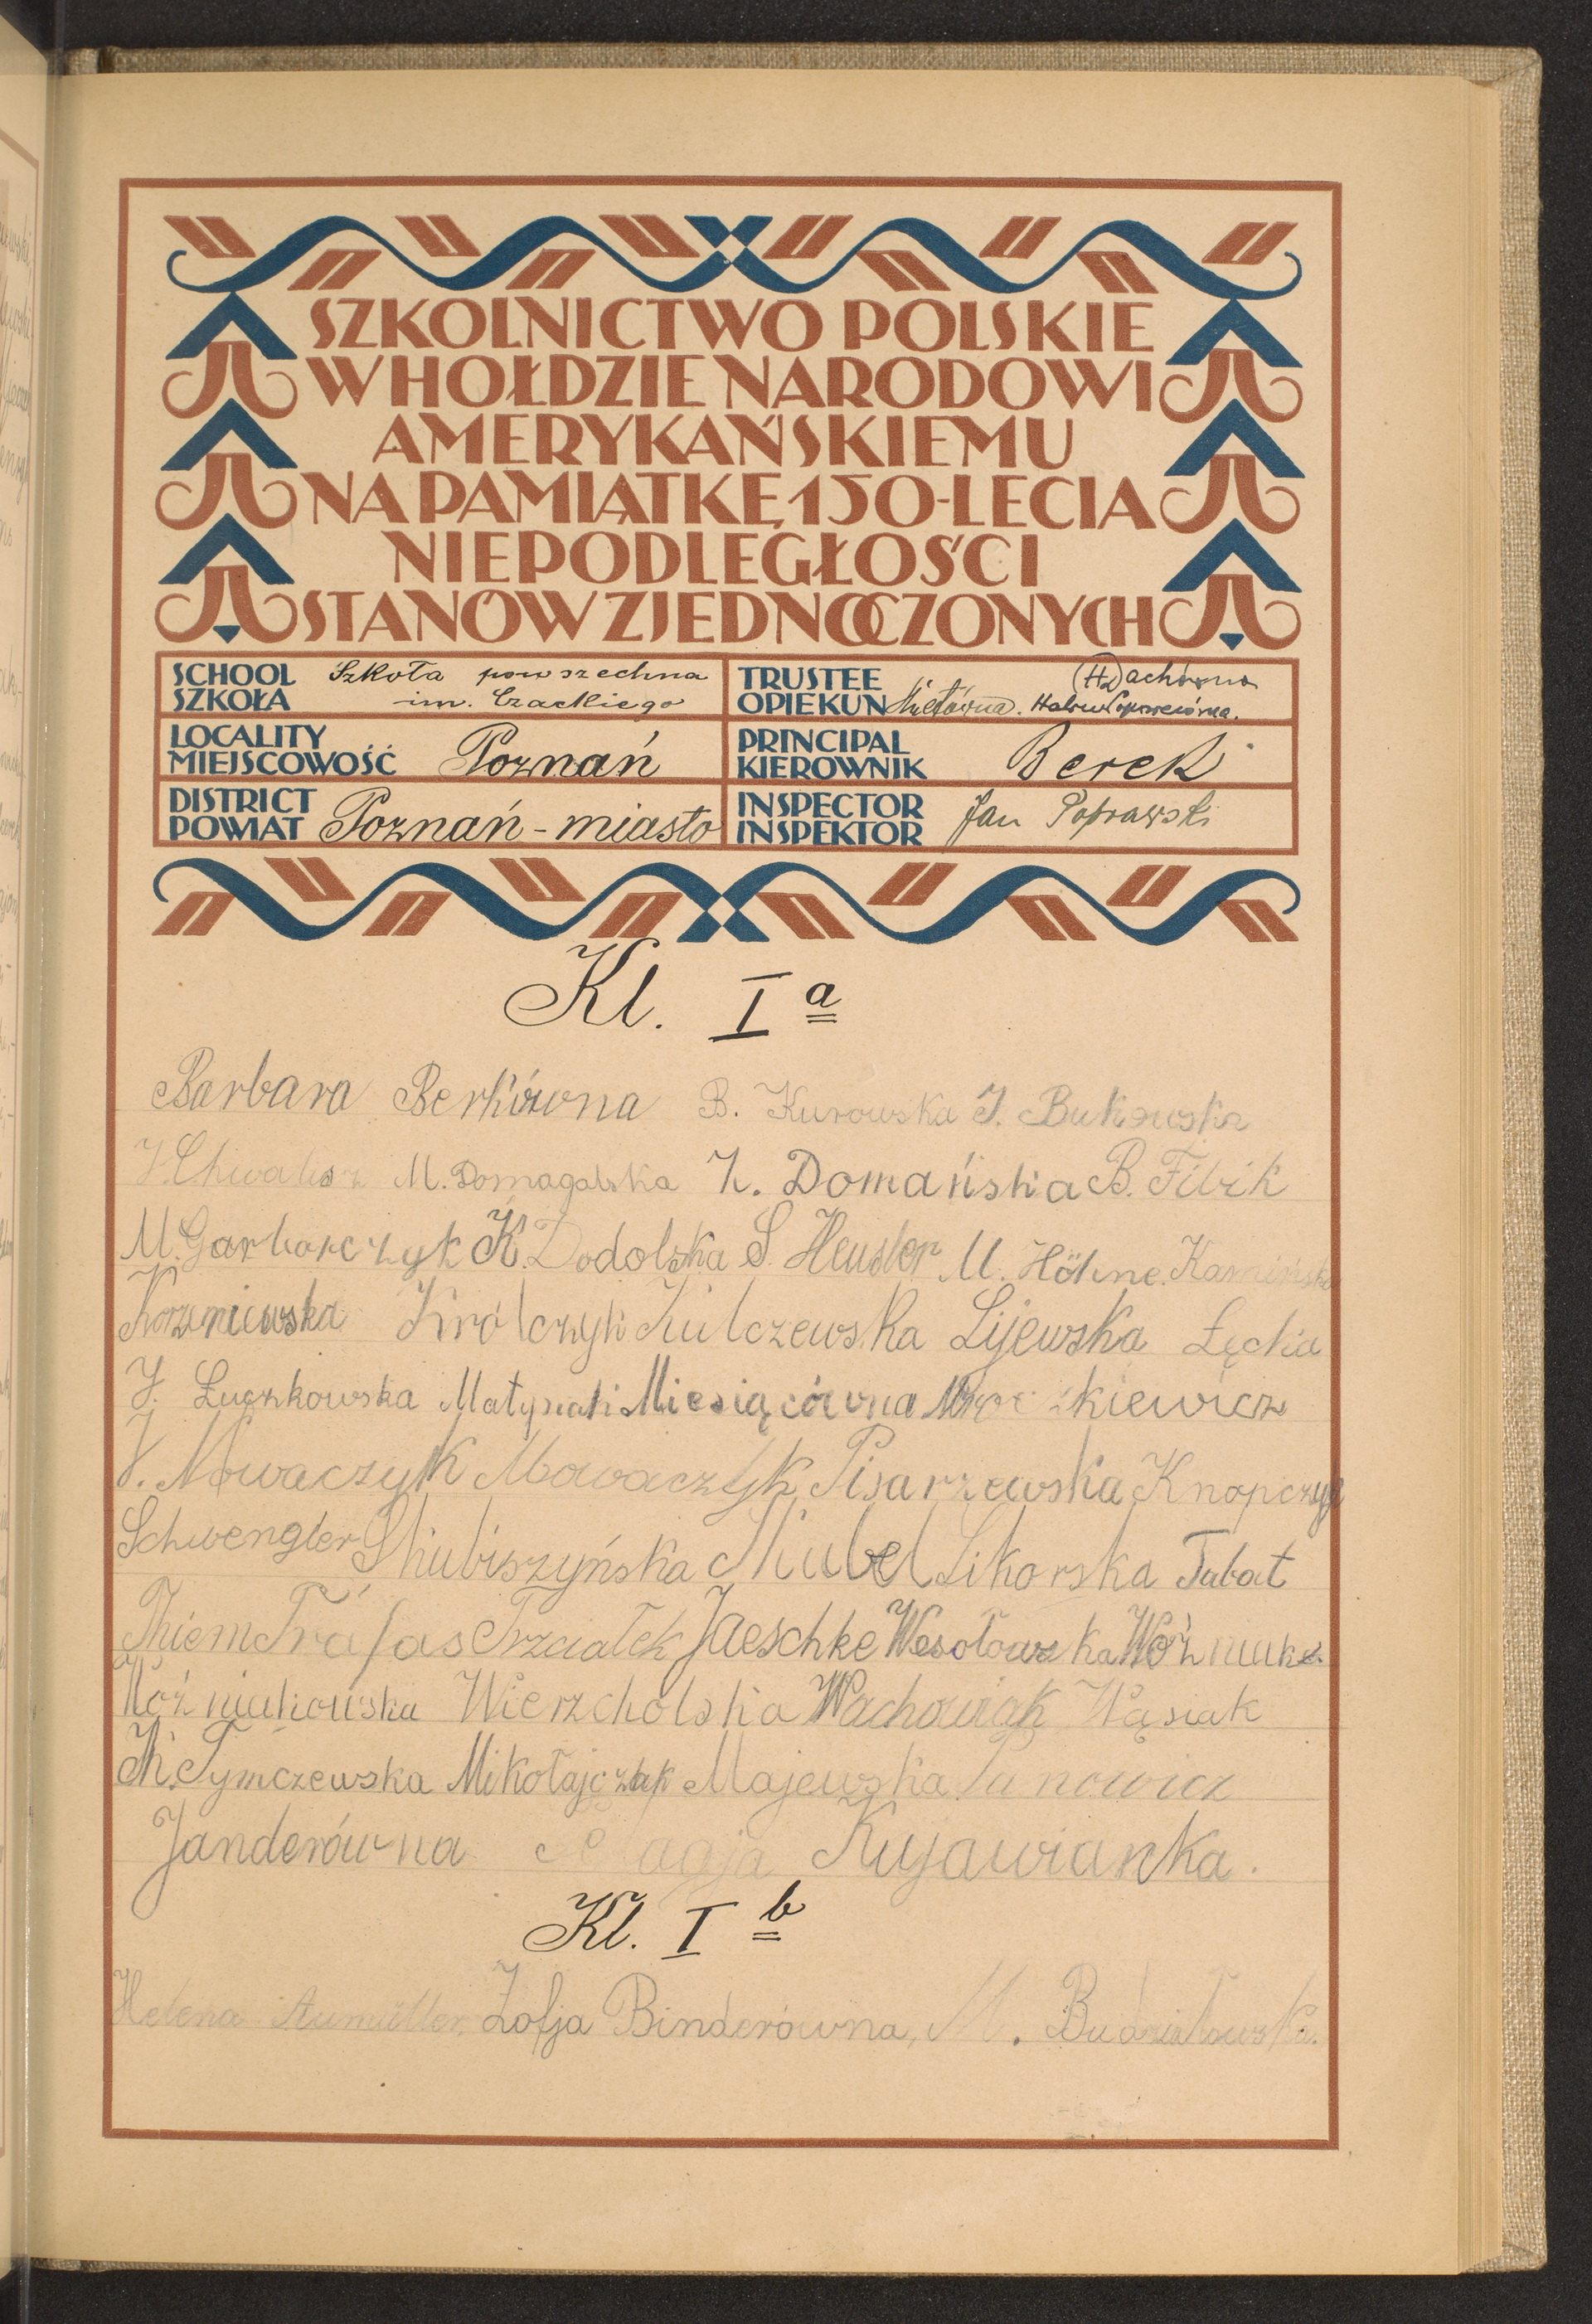 SZKOLNICTWO POLSKIE
W HOŁDZIE NARODOWI
AMERYKAŃSKIEMU
NA PAMIĄTKĘ 150-LECIA
NIEPODLEGŁOŚCI
STANÓW ZJEDNOCZONYCH
SCHOOL SZKOŁA Szkoła powszechna im. Czackiego
TRUSTEE OPIEKUN
LOCALITY MIEJSCOWOŚĆ Poznań
PRINCIPAL KIEROWNIK Berek
DISTRICT POWIAT Poznań-miasto
INSPECTOR INSPEKTOR Jan Poprawski
Kl. I a
Barbara Berkówna B. Kurowska J. Bukowska
M. Domagalska Z. Domańska B. Fibik
M. Garbarczyk K. Dodolska S. Heusler M. Höhne. Kamińska
Korzeniewska Królczyk Kulczewska Lijewska Łęcka
J. Łuczkowska Matysiak Miesiącówna
J. Nowaczyk Nowaczyk Pisarzewska Knopczyk
Schwengler Skubiszyńska Skubel Sikorska Tabat
Thiem Trafas Trzciałek Jaeschke Wesołowska
Woźniakowska Wierzcholska Wachowiak Wąsiak
K. Tymczewska Mikołajczak Majewska
Janderówna Kujawianka.
Kl. I b
Helena Aumüller, Zofja Binderówna, M. Budziałowska.